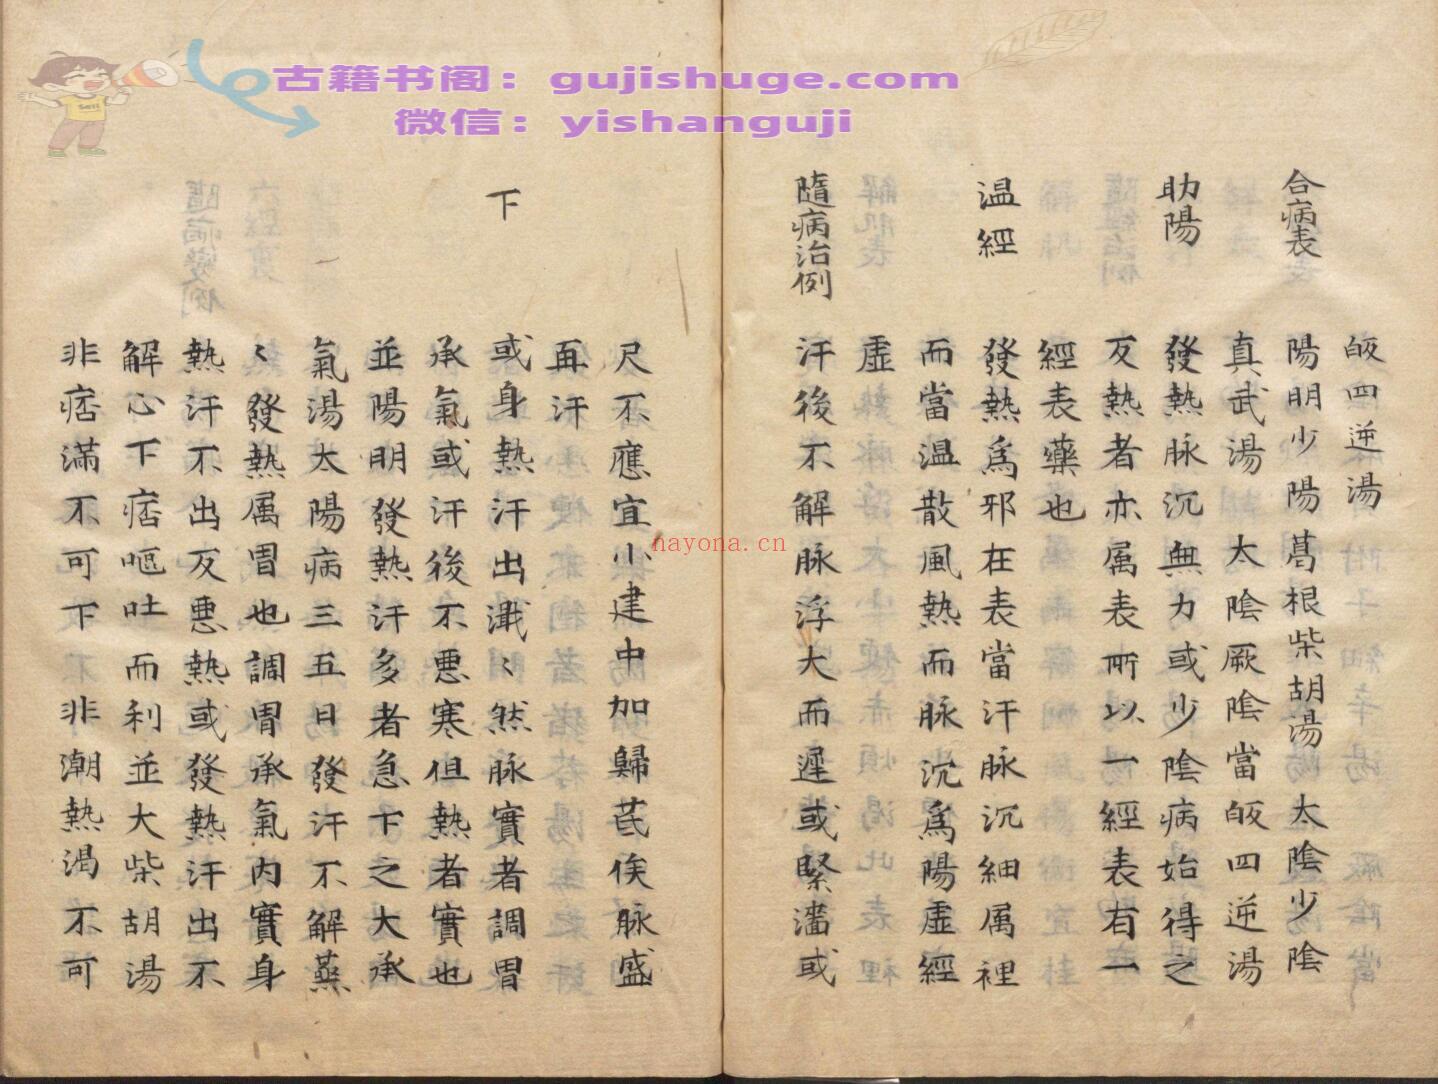 古籍书阁：gujishuge.com
微信：yishanguji
㕮四逆湯
合病表
陽明少陽葛根柴胡湯太陰少陰
真武湯太陰厥陰當㕮四逆湯
助陽
發熱脉沉無力或少陰病始得之
反熱者亦属表所以一經表有一
經表藥也
温經
發熱為邪在表當汗脉沉細属裡
而當温散風熱而脉沉為陽虛經
虛
隨病治例
汗後不解脉浮大而遲或緊濇或
尺不應宜小建中加歸芪俟脉盛
再汗
下
或身熱汗出濈〻然脉實者調胃
承氣或汗後不悪寒但熱者實也
並陽明發熱汗多者急下之大承
氣湯太陽病三五日發汗不解蒸
〻發熱属胃也調胃承氣内實身
熱汗不出反悪熱或發熱汗出不
解心下痞嘔吐而利並大柴胡湯
非痞滿不可下非潮熱渴不可
nayona.cn